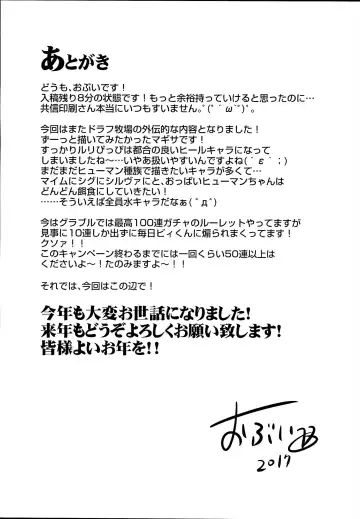 あとがき
どうも、おぶいです!
入稿残り8分の状態です!もっと余裕持っていけると思ったのに…
共信印刷さん本当にいつもすいません。ﾟ(ﾟ´ω`ﾟ)ﾟ。
今回はまたドラフ牧場の外伝的な内容となりました!
ずーっと描いてみたかったマギサです!
すっかりルリぴっぴは都合の良いヒールキャラになって
しまいましたね〜…いやあ扱いやすいんですよね(´ε`;)
まだまだヒューマン種族で描きたいキャラが多くて…
マイムにシグにシルヴァにと、おっぱいヒューマンちゃんは
どんどん餌食にしていきたい!
……そういえば全員水キャラだなぁ(ﾟдﾟ)
今はグラブルでは最高100連ガチャのルーレットやってますが
見事に10連しか出ずに毎日ビィくんに煽られまくってます!
クソァ!!
このキャンペーン終わるまでには一回くらい50連以上は
くださいよ〜!たのみますよ〜!!
それでは、今回はこの辺で!
今年も大変お世話になりました!
来年もどうぞよろしくお願い致します!
皆様よいお年を!!
おぶい
2017